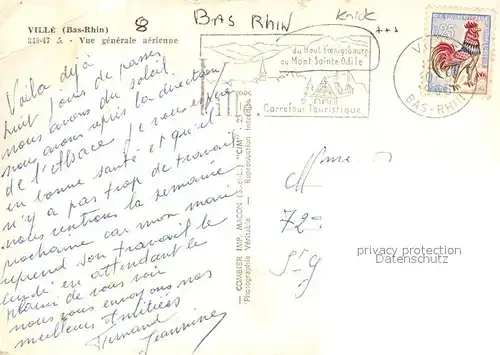 VILLÉ (Bas-Rhin)
343-47 A. - Vue générale aérienne
8
BAS RHIN
Knick
Voila déjà
huit jours de passés
nous avons du soleil.
nous avons pris la direction
de l'Alsace je vous espère
en bonne santé et qu'il
n'y a pas trop de travail
nous rentrons la semaine
prochaine car mon mari
reprend son travail le
lundi en attendant le
plaisir de vous voir
nous vous envoyons nos
meilleurs Amitiées
Fernand
Jeannine
du Haut Kœnigsbourg
au Mont Sainte Odile
Carrefour Touristique
BAS-RHIN
0,25
— COMBIER IMP. MACON (S.-et-L.) "CIM"
Photographie Véritable - Reproduction Interdite
Mme
72
St G
privacy protection
AnsichtskartenKoenig.de